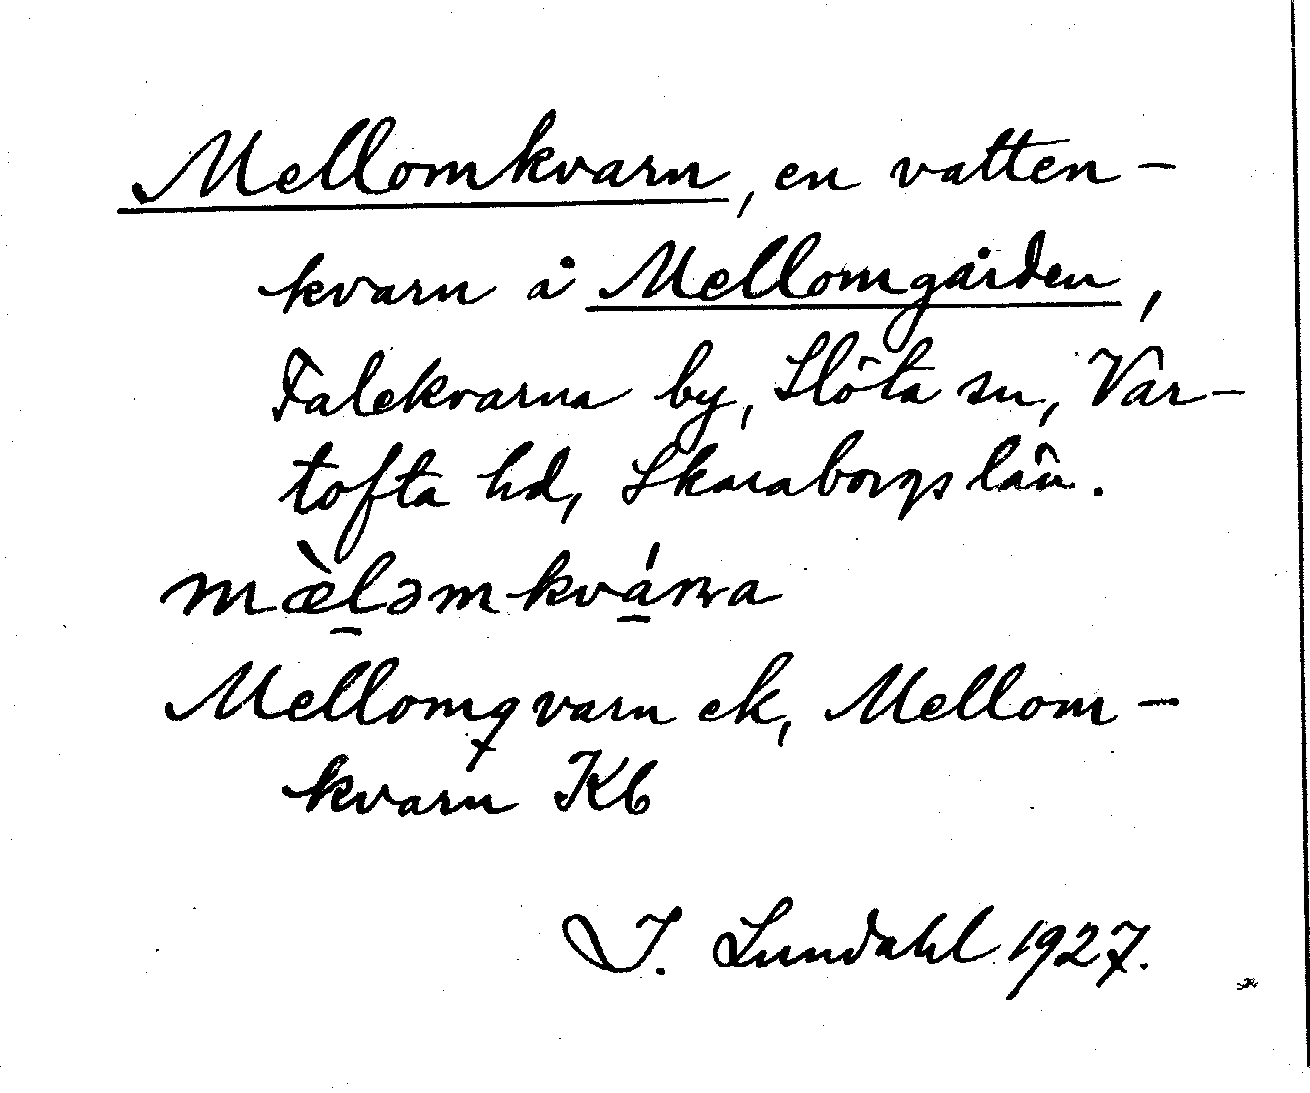 Mellomkvarn, en vatten-
kvarn å Mellomgården,
Falekvarna by, Slöta sn, Var-
tofta hd, Skaraborgs län.
mæ̀l̠əmkvá̠rna
Mellomqvarn ek, Mellom-
kvarn Kb
I. Lundahl 1927.